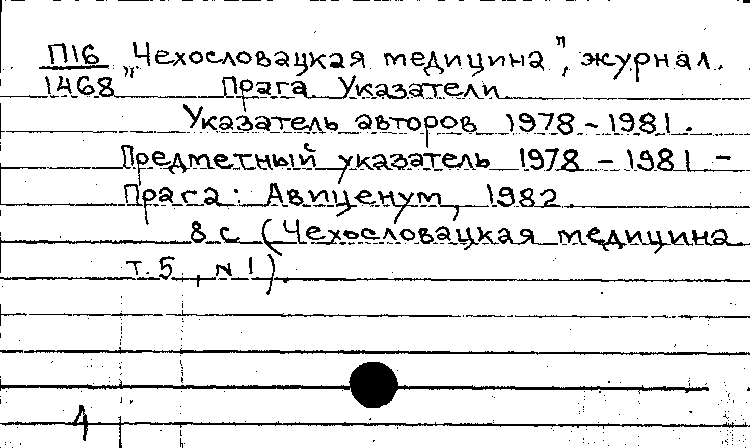 П16 „Чехословацкая медицина", журнал.
1468 Прага. Указатели
Указатель авторов 1978-1981.
Предметный указатель 1978-1981 -
Прага: Авиценум, 1982.
8 с (Чехословацкая медицина
т. 5, N 1).
4